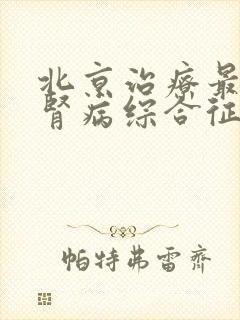 北京治疗最
肾病综合征
帕特弗雷齐